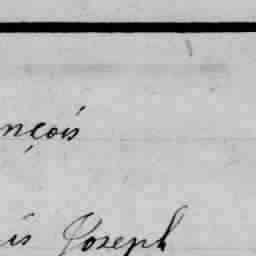 nçois
is Joseph